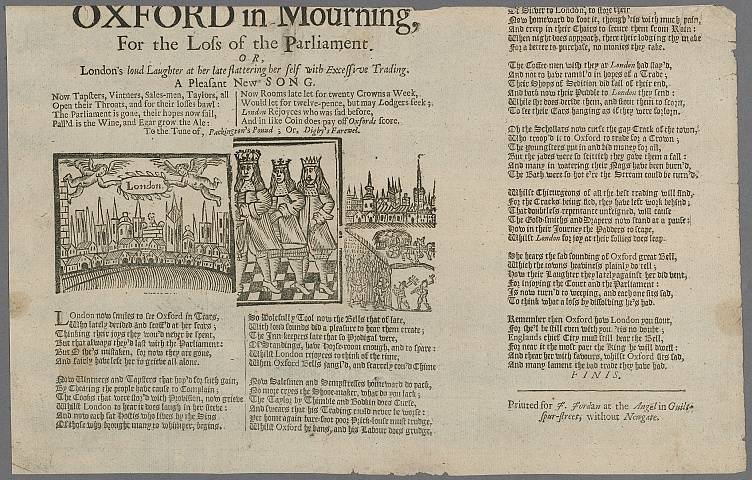 OXFORD in Mourning,
For the Loſs of the Parliament.
OR,
London's loud Laughter at her late flattering her ſelf with Exceſſive Trading.
A Pleaſant New SONG.
Now Tapſters, Vintners, Sales-men, Taylors, all
Open their Throats, and for their loſſes bawl:
The Parliament is gone, their hopes now fail,
Pall'd is the Wine, and Egar grow the Ale:
Now Rooms late let for twenty Crowns a Week,
Would let for twelve-pence, but may Lodgers ſeek;
London Rejoyces who was ſad before,
And in like Coin does pay off Oxfords ſcore.
To the Tune of, Packington's Pound; Or, Digby's Farewel.
London.
London now ſmiles to ſee Oxford in Tears,
Who lately derided and ſcoff'd at her fears;
Thinking their joys they would never be ſpent,
But that always they'd laſt with the Parliament:
But O ſhe's miſtaken, for now they are gone,
And fairly have left her to grieve all alone.
Now Vintners and Tapſters that hop'd for ſuch gain,
By Cheating the people have cauſe to Complain;
The Cooks that were ſtor'd with Proviſion, now grieve
Whilſt London to hear it does laugh in her ſleeve:
And now each fat Hoſteſs who lives by the Sins
Of thoſe who brought many to whimper, begins.
So dolefully Tool now the Bells that of late,
With loud ſounds did a pleaſure to hear them create;
The Inn-keepers late that ſo prodigal were,
Of Standings, have houſe-room enough, and to ſpare:
Whilſt London rejoyces to think of the time,
When Oxford Bells jangl'd, and ſcarcely cou'd Chime
Now Saleſmen and Sempſtreſſes homeward do pack,
No more cryes the Shoe-maker, what do you lack;
The Taylor by Thimble and Bodkin does Curſe,
And ſwears that his Trading could never be worſe:
For home again bare-foot poor Prick-louſe muſt trudge,
Whilſt Oxford he bans, and his Labour does grudge.
Of Silver to London, to ſtore their
Now homeward do foot it, though 'tis with much pain,
And creep in their Chairs to ſecure them from Rain:
When night does approach, there their lodging they make
For a better to purchaſe, no monies they take.
The Coffee-men wiſh they at London had ſtay'd,
And not to have rambl'd in hopes of a Trade;
Their Shops of Sedition do fail of their end,
And back now their People to London they ſend:
While ſhe does deride them, and flout them to ſcorn,
To ſee their Ears hanging as if they were forlorn.
Oh the Schollars now curſe the gay Crack of the town,
Who troop'd it to Oxford to trade for a Crown;
The youngſters put in and bid money for all,
But the jades were ſo ſkittiſh they gave them a fall:
And many in watering their Nags have been burn'd,
The Bath were ſo hot e're the Stream could be turn'd.
Whilſt Chirurgeons of all the beſt trading will find,
For the Cracks being fled, they have left work behind;
That doubtleſs repentance unfeigned, will cauſe
The Gold-ſmiths and Drapers now ſtand at a pauſe;
Now in their Journey the Padders to ſcape,
Whilſt London for joy at their follies does leap.
She hears the ſad ſounding of Oxford great Bell,
Which the towns heavineſs plainly do tell;
Now their Laughter they lately againſt her did vent,
For injoying the Court and the Parliament:
Is now turn'd to weeping, and each one ſits ſad,
To think what a loſs by diſſolving he's had.
Remember then Oxford how London you flout,
For ſhe'l be ſtill even with you 'tis no doubt;
Englands chief City muſt ſtill bear the Bell,
For near it the moſt par the King he will dwell:
And chear her with favours, whilſt Oxford ſits ſad,
And many lament the bad trade they have had.
FINIS.
Printed for J. Jordan at the Angel in Guilt-
ſpur-ſtreet, without Newgate.